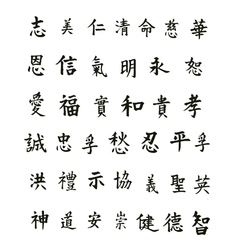 志美仁清命慈華
恩信氣明永恕
愛福實和貴孝
誠忠孚愁忍平孚
洪禮示協義聖英
神道安崇健德智